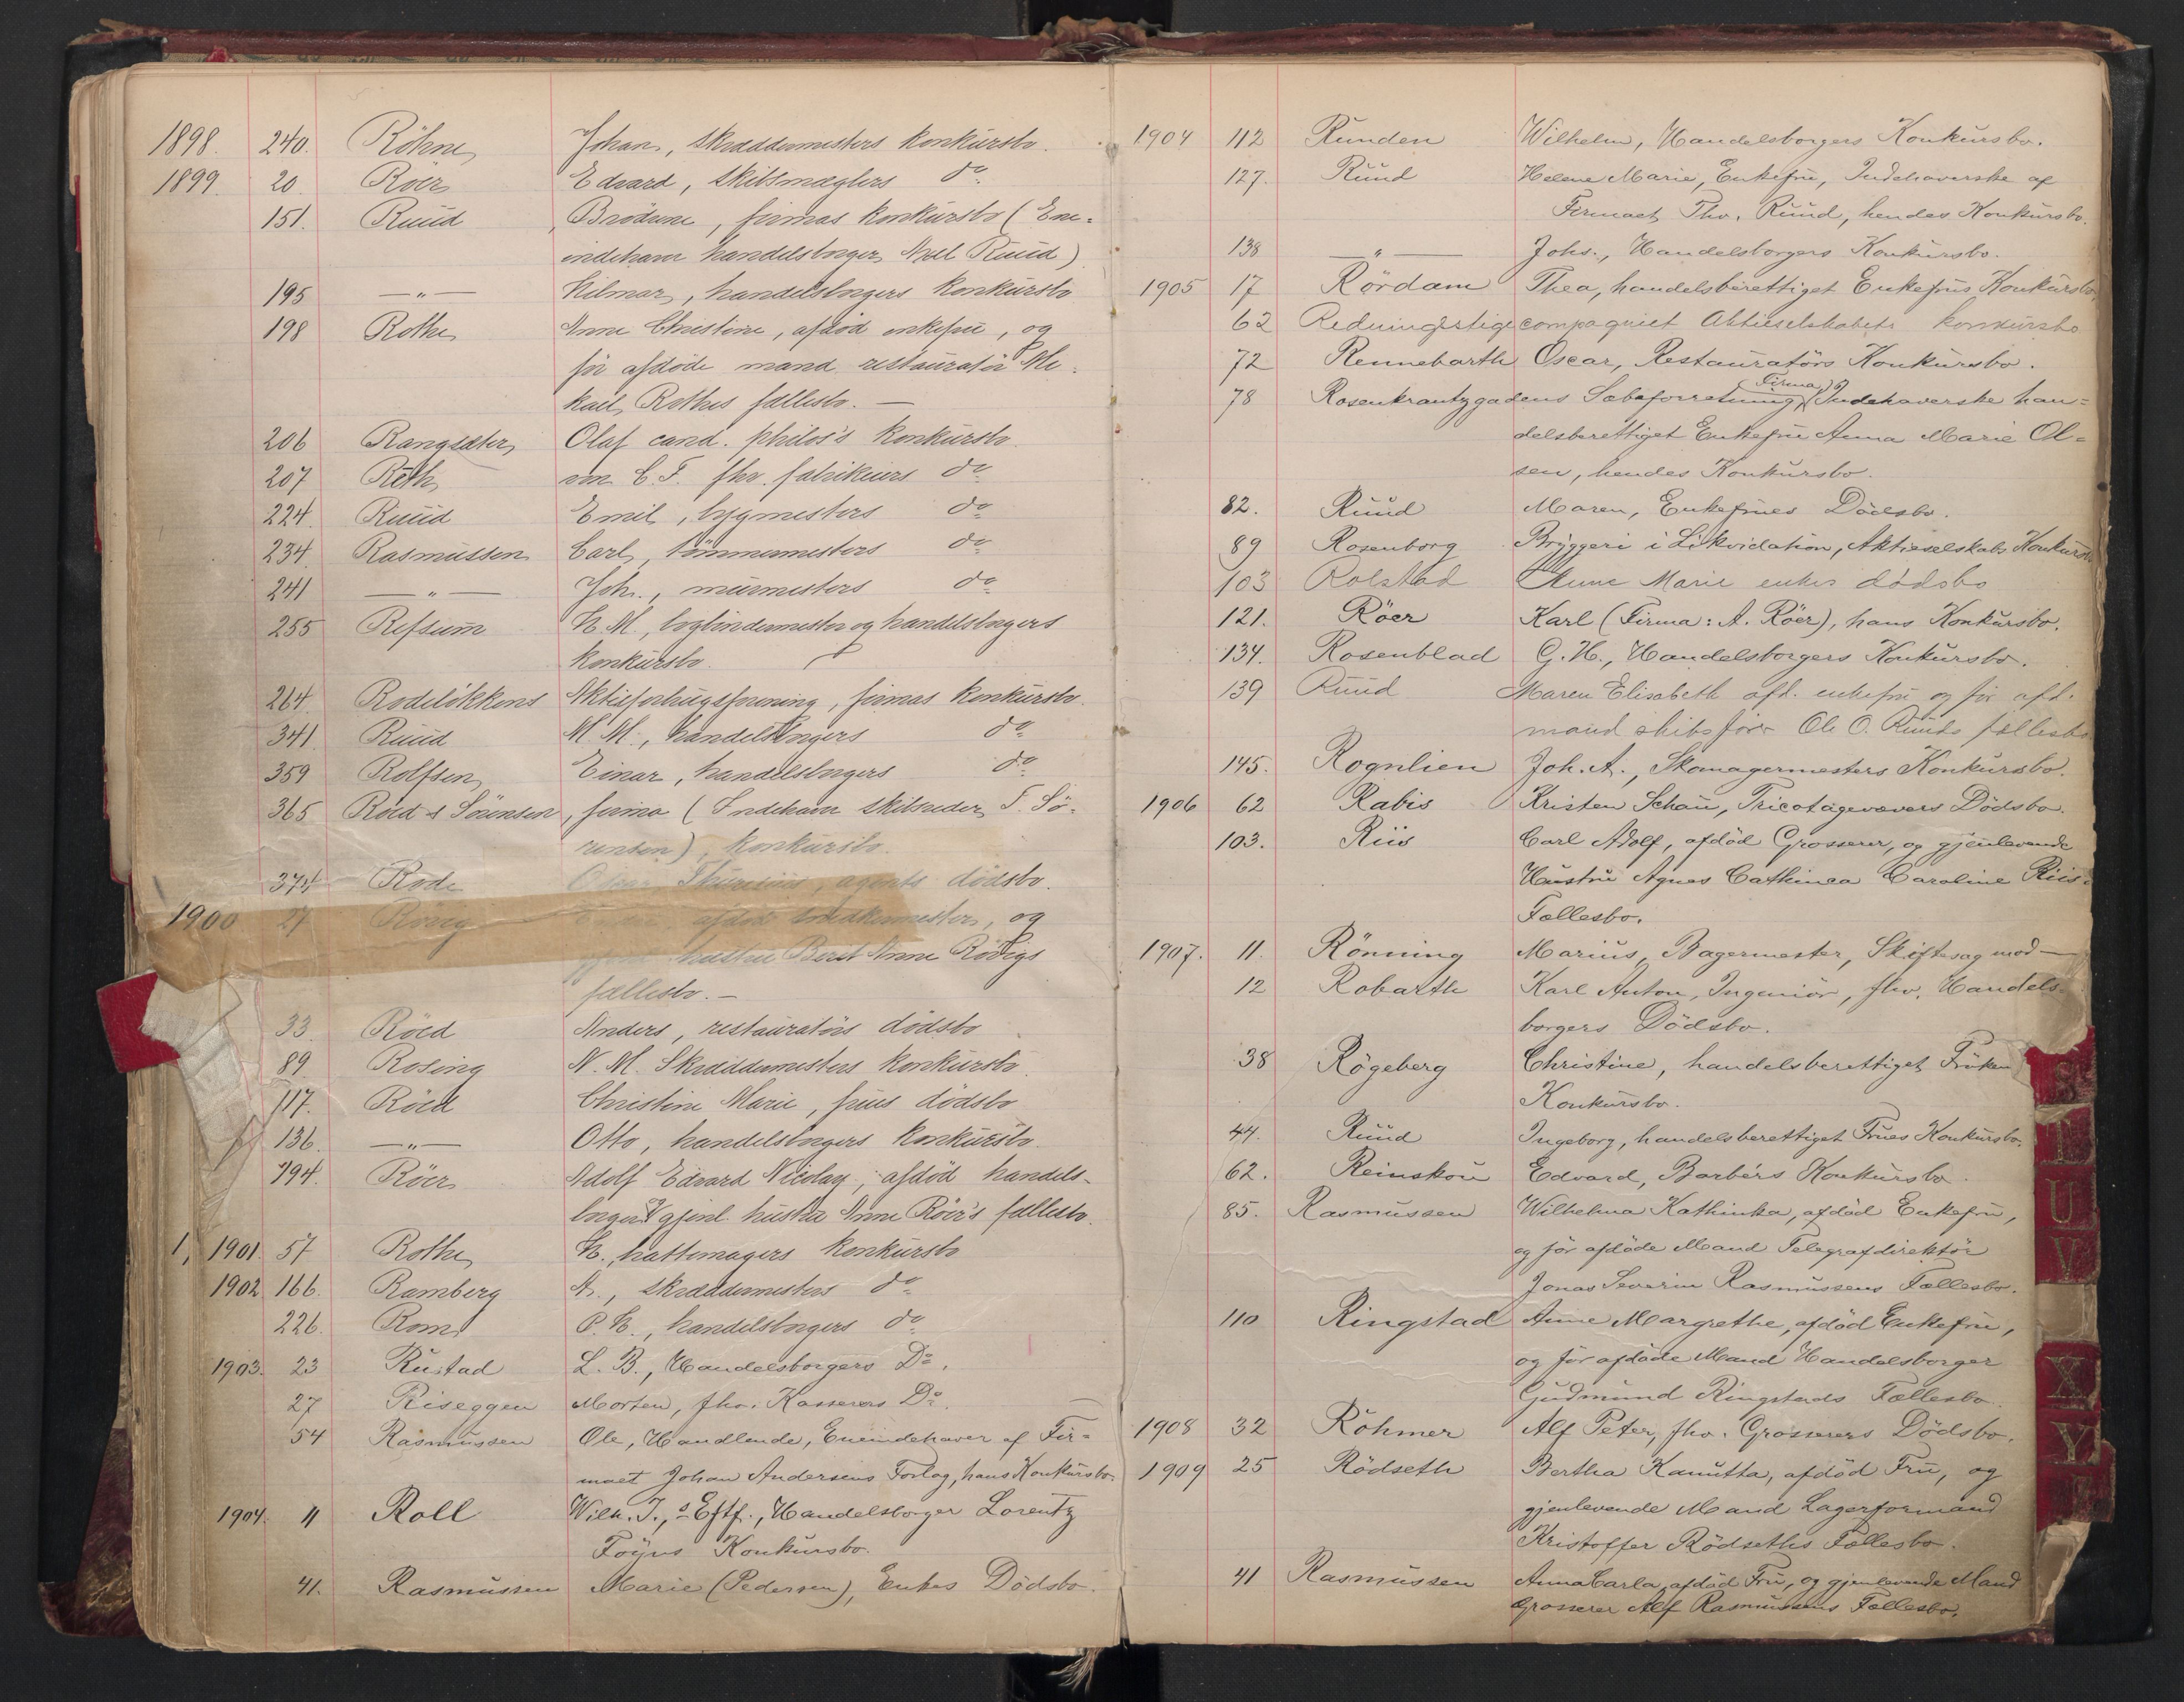 1898. 240. Röhne Johan, skræddermesters konkursbo.
1899. 20. Röer Edvard, skibsmæglers do
151. Ruud, Brödrene, firmas konkursbo (Ene-
indehaver handelsborger Axel Ruud)
195 —„— Hilmar, handelsborgers konkursbo
198 Rothe Anne Christine, afdöd enkefru, og
för afdöde mand restauratör Mi-
kael Rothes fællesbo. —
206 Rangsæter Olaf cand. philos's konkursbo
207 Reth von C. F. fhv. fabrikeiers do
224. Ruud Emil, bygmesters do
234. Rasmussen Carl, tömmermesters do
241 —„— Joh., murmesters do
255 Refsum H. M., bogbindermester og handelsborgers
konkursbo.
264. Rodelökkens Aktieforbrugsforening, firmas konkursbo.
341 Ruud M. M., handelsborgers do
359 Rolfsen Einar, handelsborgers do
365 Röed & Sörensen, firma (Indehaver skibsreder T. Sö-
rensen), konkursbo.
374 Rode Oskar Thuresius, agents dödsbo.
1900 27 Rövig afdöd snedkermester, og
hustru Berit Anne Rövigs
fællesbo. —
33 Röed Anders, restauratörs dödsbo
89. Rosing N. M. Skræddermesters konkursbo.
117. Röed Christine Marie, frues dödsbo
136. —„— Otto, handelsborgers konkursbo.
194. Röer Adolf Edvard Nicolay, afdöd handels-
borger & gjenl. hustru Anne Röer's fællesbo.
1, 1901. 57 Rothe H., hattemagers konkursbo
1902 166. Ramberg A., skræddermesters do
226. Rom P. H., handelsborgers do
1903. 23 Rustad L. B., Handelsborgers Do.
27 Riseggen Morten, fhv. Kasserers Do.
54 Rasmussen Ole, Handlende, Eneindehaver af Fir-
maet Johan Andersens Forlag, hans Konkursbo.
1904. 11 Roll Wilh. J.,s Eftf., Handelsborger Lorentz
Föyns Konkursbo.
41. Rasmussen Marie (Pedersen), Enkes Dödsbo
1904 112 Runden Wilhelm, Handelsborgers Konkursbo.
127. Ruud Helene Marie, Enkefru, Indehaverske af
Firmaet Thv. Ruud, hendes Konkursbo.
138 —„— Johs., Handelsborgers Konkursbo.
1905 17 Rördam Thea, handelsberettiget Enkefrus Konkursbo
62 Redningsstigecompagniet Aktieselskabets konkursbo
72 Rennebarth Oscar, Restauratörs Konkursbo.
78 Rosenkrantzgadens Sæbeforretning (Firma), Indehaverske han-
delsberettiget Enkefru Anna Marie Ol-
sen, hendes Konkursbo.
82. Ruud Maren, Enkefrues Dödsbo.
89 Rosenborg Bryggeri i Likvidation, Aktieselskabs Konkursbo
103 Rolstad Anne Marie enkes dödsbo
121. Röer Karl (Firma: A. Röer), hans Konkursbo.
134. Rosenblad G. H., Handelsborgers Konkursbo.
139 Ruud Maren Elisabeth afd. enkefru og för afd.
mand skibsförer Ole O. Ruuds fællesbo
145. Rognlien Joh. A., Skomagermesters Konkursbo.
1906 62 Rabis Kristen Schau, Tricotagevævers Dödsbo.
103. Riis Carl Adolf, afdöd Grosserer, og gjenlevende
Hustru Agnes Cathinca Caroline Riis'
Fællesbo.
1907. 11. Rönning Marius, Bagermester, Skiftesag mod —
12 Robarth Karl Anton, Ingeniör, fhv. Handels-
borgers Dödsbo.
38 Rögeberg Christine, handelsberettiget Fröken
Konkursbo.
44. Ruud Ingeborg, handelsberettiget Frues Konkursbo.
62. Reinskou Edvard, Barbérs Konkursbo.
85. Rasmussen Wilhelma Kathinka, afdöd Enkefru,
og för afdöde Mand Telegrafdirektör
Jonas Severin Rasmussens Fællesbo.
110 Ringstad Anne Margrethe, afdöd Enkefru,
og för afdöde Mand Handelsborger
Gudmund Ringstads Fællesbo.
1908 32 Röhmer Alf Peter, fhv. Grosserers Dödsbo.
1909 25 Rödseth Bertha Kanutta, afdöd Fru, og
gjenlevende Mand Lagerformand
Kristoffer Rödseths Fællesbo.
41 Rasmussen Anna Carla, afdöd Fru, og gjenlevende Mand
Grosserer Alf Rasmussens Fællesbo.
S
T
U
V
X
Y